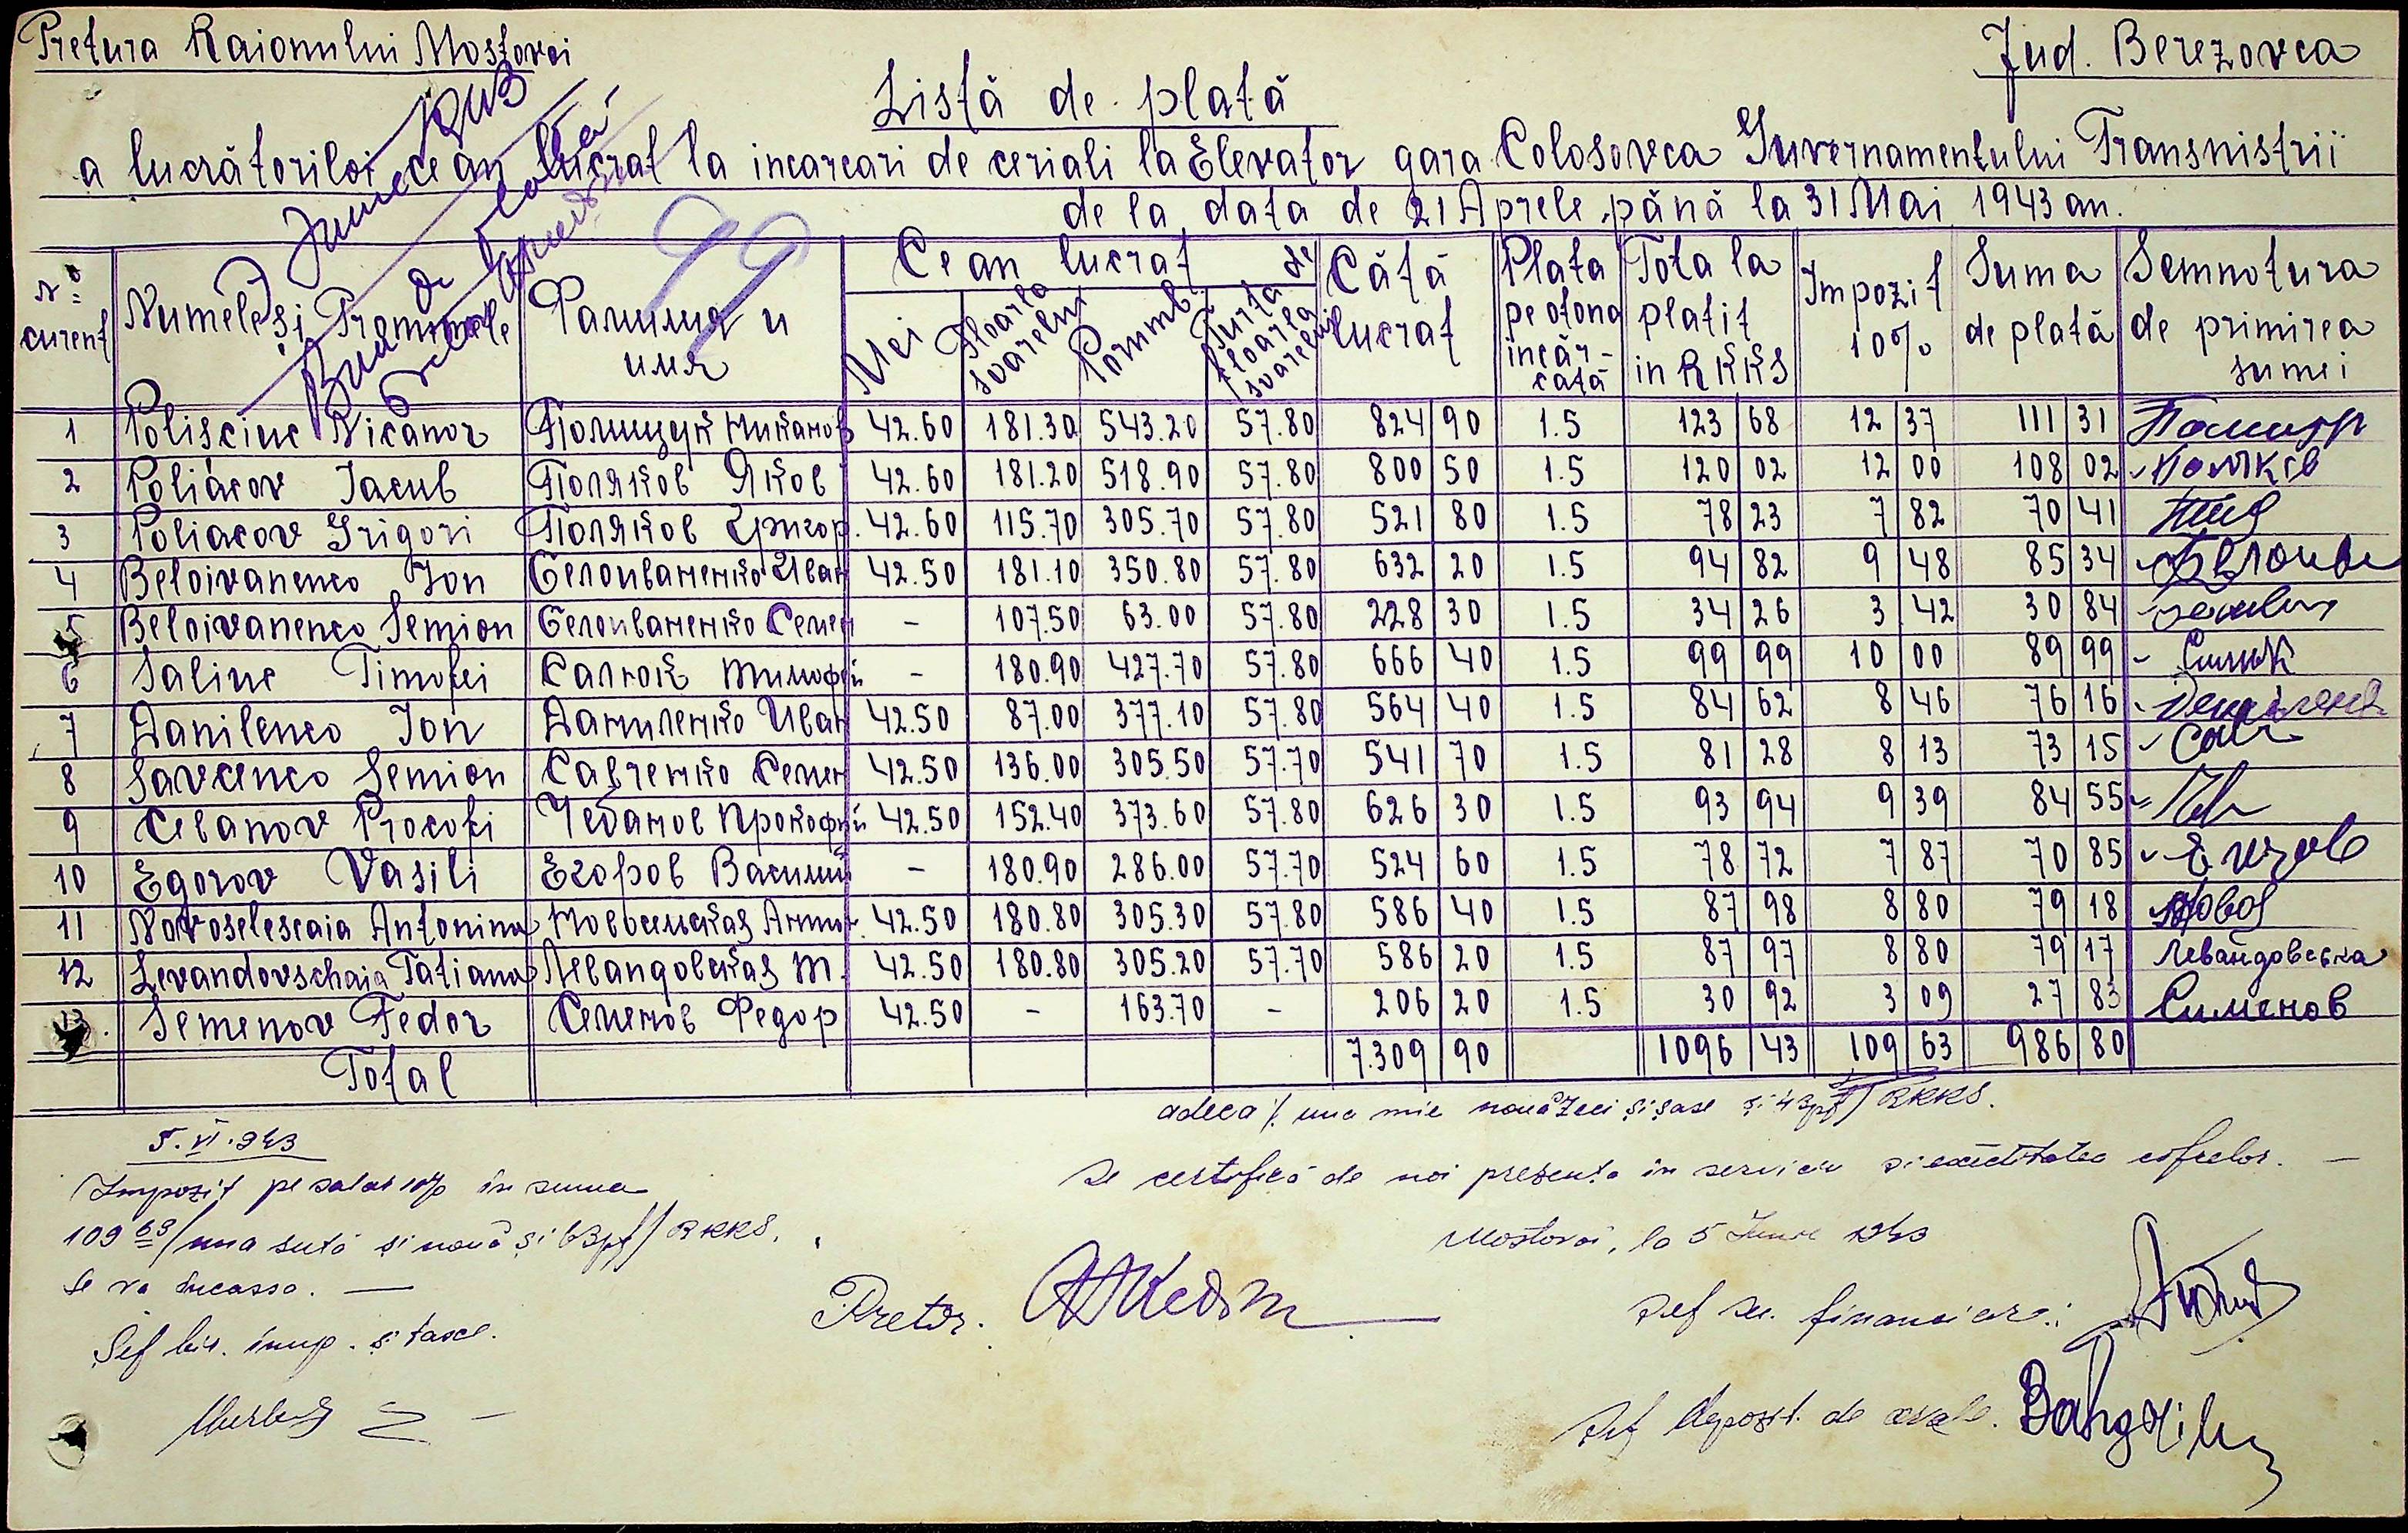 Pretura Raionului Mostovoi
Jud. Berezovca
Listă de plată
a lucrătoriloi ce an lucrat la incarcari de ceriali la Elevator gara Colosovca Guvernamentului Transnistrii
de la data de 21 Aprele până la 31 Mai 1943 an.
Bun de plată
Junie 1943
№ curent | Numele și Pronumele | Фамилия и имя | Ce an lucrat | Cătă lucrat | Plata pe otona incăr-cată | Tota la platit in RKKS | Impozit 10% | Suma de plată | Semnotura de primirea sumei
Mei | Floarla soarelui | Porumb | Turta de floarla soarelui
1 Polisciuc Nicanor Полищук Никанор 42.60 181.30 543.20 57.80 824 90 1.5 123 68 12 37 111 31
2 Poliacov Iacub Поляков Яков 42.60 181.20 518.90 57.80 800 50 1.5 120 02 12 00 108 02 Поляков
3 Poliacov Grigori Поляков Григор. 42.60 115.70 305.70 57.80 521 80 1.5 78 23 7 82 70 41
4 Beloivanenco Ion Белоиваненко Иван 42.50 181.10 350.80 57.80 632 20 1.5 94 82 9 48 85 34 Белоива
5 Beloivanenco Semion Белоиваненко Семен - 107.50 63.00 57.80 228 30 1.5 34 26 3 42 30 84
6 Saliuc Timofei Салюк Тимофей - 180.90 427.70 57.80 666 40 1.5 99 99 10 00 89 99
7 Danilenco Ion Даниленко Иван 42.50 87.00 377.10 57.80 564 40 1.5 84 62 8 46 76 16
8 Savcenco Semion Савченко Семен 42.50 136.00 305.50 57.70 541 70 1.5 81 28 8 13 73 15
9 Cebanov Procofi Чебанов Прокофий 42.50 152.40 373.60 57.80 626 30 1.5 93 94 9 39 84 55
10 Egorov Vasili Егоров Василий - 180.90 286.00 57.70 524 60 1.5 78 72 7 87 70 85
11 Novoselescaia Antonina Новосельская Антон. 42.50 180.80 305.30 57.80 586 40 1.5 87 98 8 80 79 18
12 Levandovschaia Tatiana Левандовская Т. 42.50 180.80 305.20 57.70 586 20 1.5 87 97 8 80 79 17 Левандовська
13. Semenov Fedor Семенов Федор 42.50 - 163.70 - 206 20 1.5 30 92 3 09 27 83 Сименов
Total 7.309 90 1096 43 109 63 986 80
adeca /. una mie nouăzeci și șase și 43 pf // RKKS.
5.VI.943
Impozit pe salar 10% în suma
109 63 / una sută și nouă și 63 pf // RKKS.
se va încassa. —
Șef bir. imp. și taxe.
Se certifică de noi prezenta în serviciu și exactitatea cifrelor. —
Mostovoi, la 5 Iunie 1943
Pretor.
Șef se. financiar:
Șef depozit. de cereale.